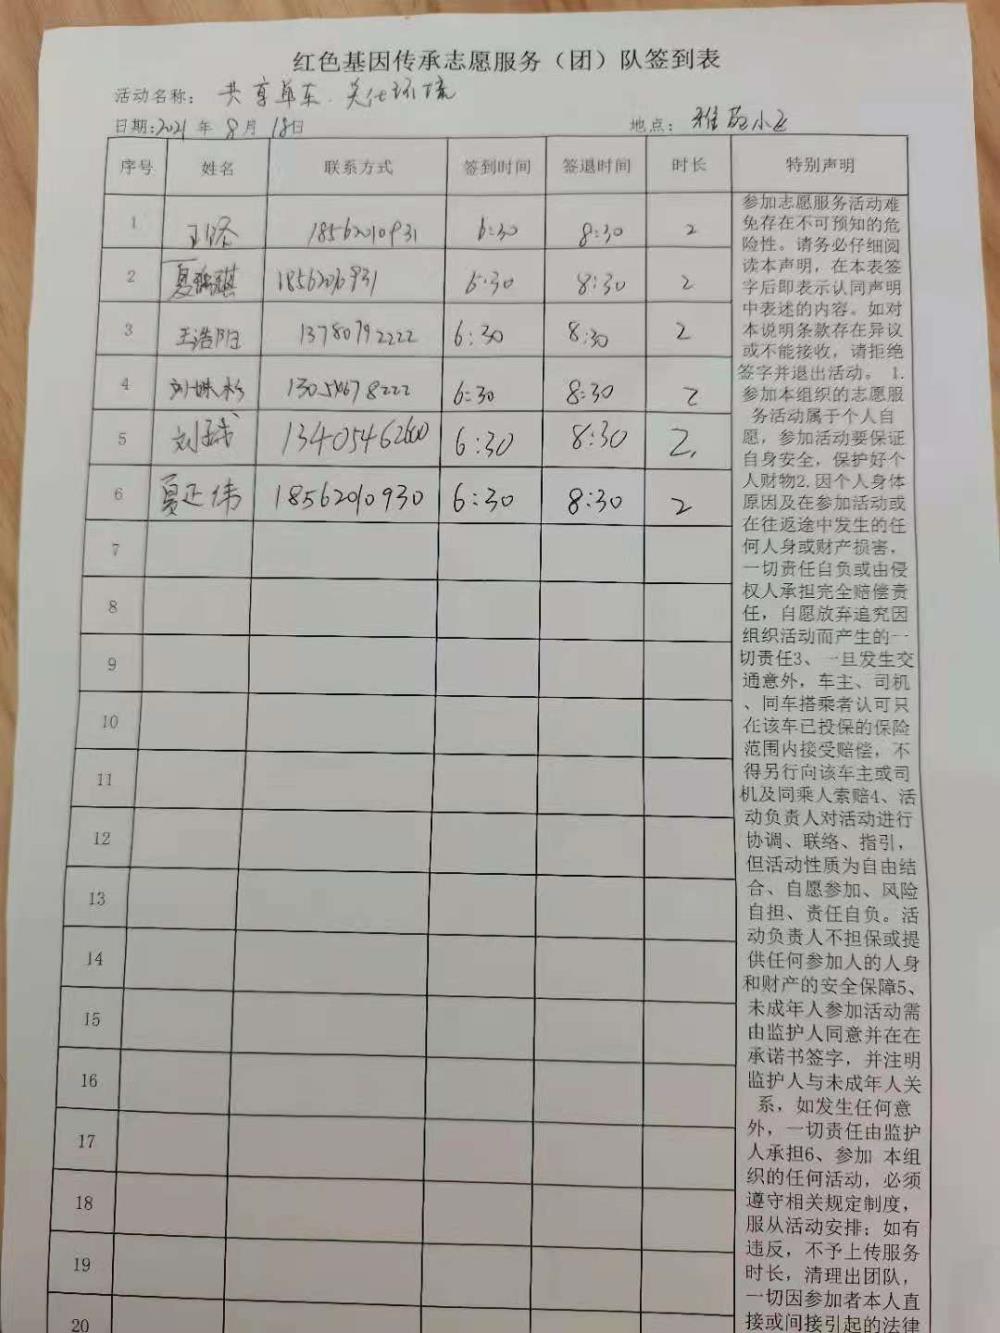 红色基因传承志愿服务（团）队签到表
活动名称： 共享单车.美化环境
日期:2021 年 8 月 18日 地点：雅苑小区
序号 姓名 联系方式 签到时间 签退时间 时长 特别声明
1 18562010931 6:30 8:30 2
2 6:30 8:30 2
3 王浩阳 13780792222 6:30 8:30 2
4 刘姝杉 6:30 8:30 2
5 刘 13405462600 6:30 8:30 2.
6 夏正伟 18562010930 6:30 8:30 2
7
8
9
10
11
12
13
14
15
16
17
18
19
20
参加志愿服务活动难
免存在不可预知的危
险性。请务必仔细阅
读本声明，在本表签
字后即表示认同声明
中表述的内容。如对
本说明条款存在异议
或不能接收，请拒绝
签字并退出活动。 1.
参加本组织的志愿服
务活动属于个人自
愿，参加活动要保证
自身安全，保护好个
人财物2.因个人身体
原因及在参加活动或
在往返途中发生的任
何人身或财产损害，
一切责任自负或由侵
权人承担完全赔偿责
任，自愿放弃追究因
组织活动而产生的一
切责任3、一旦发生交
通意外，车主、司机
、同车搭乘者认可只
在该车已投保的保险
范围内接受赔偿，不
得另行向该车主或司
机及同乘人索赔4、活
动负责人对活动进行
协调、联络、指引，
但活动性质为自由结
合、自愿参加、风险
自担、责任自负。活
动负责人不担保或提
供任何参加人的人身
和财产的安全保障5、
未成年人参加活动需
由监护人同意并在在
承诺书签字，并注明
监护人与未成年人关
系，如发生任何意
外，一切责任由监护
人承担6、参加 本组
织的任何活动，必须
遵守相关规定制度，
服从活动安排；如有
违反，不予上传服务
时长，清理出团队，
一切因参加者本人直
接或间接引起的法律